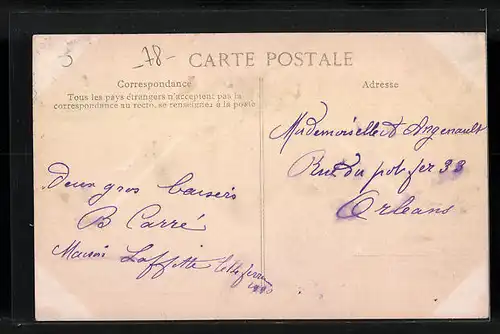 -78-
CARTE POSTALE
Correspondance
Tous les pays étrangers n'acceptent pas la
correspondance au recto, se renseigner à la poste
Deux gros baisers
B Carré
Maison Laffitte
Adresse
Mademoiselle A Angenault
Rue du pot fer 33
Orleans